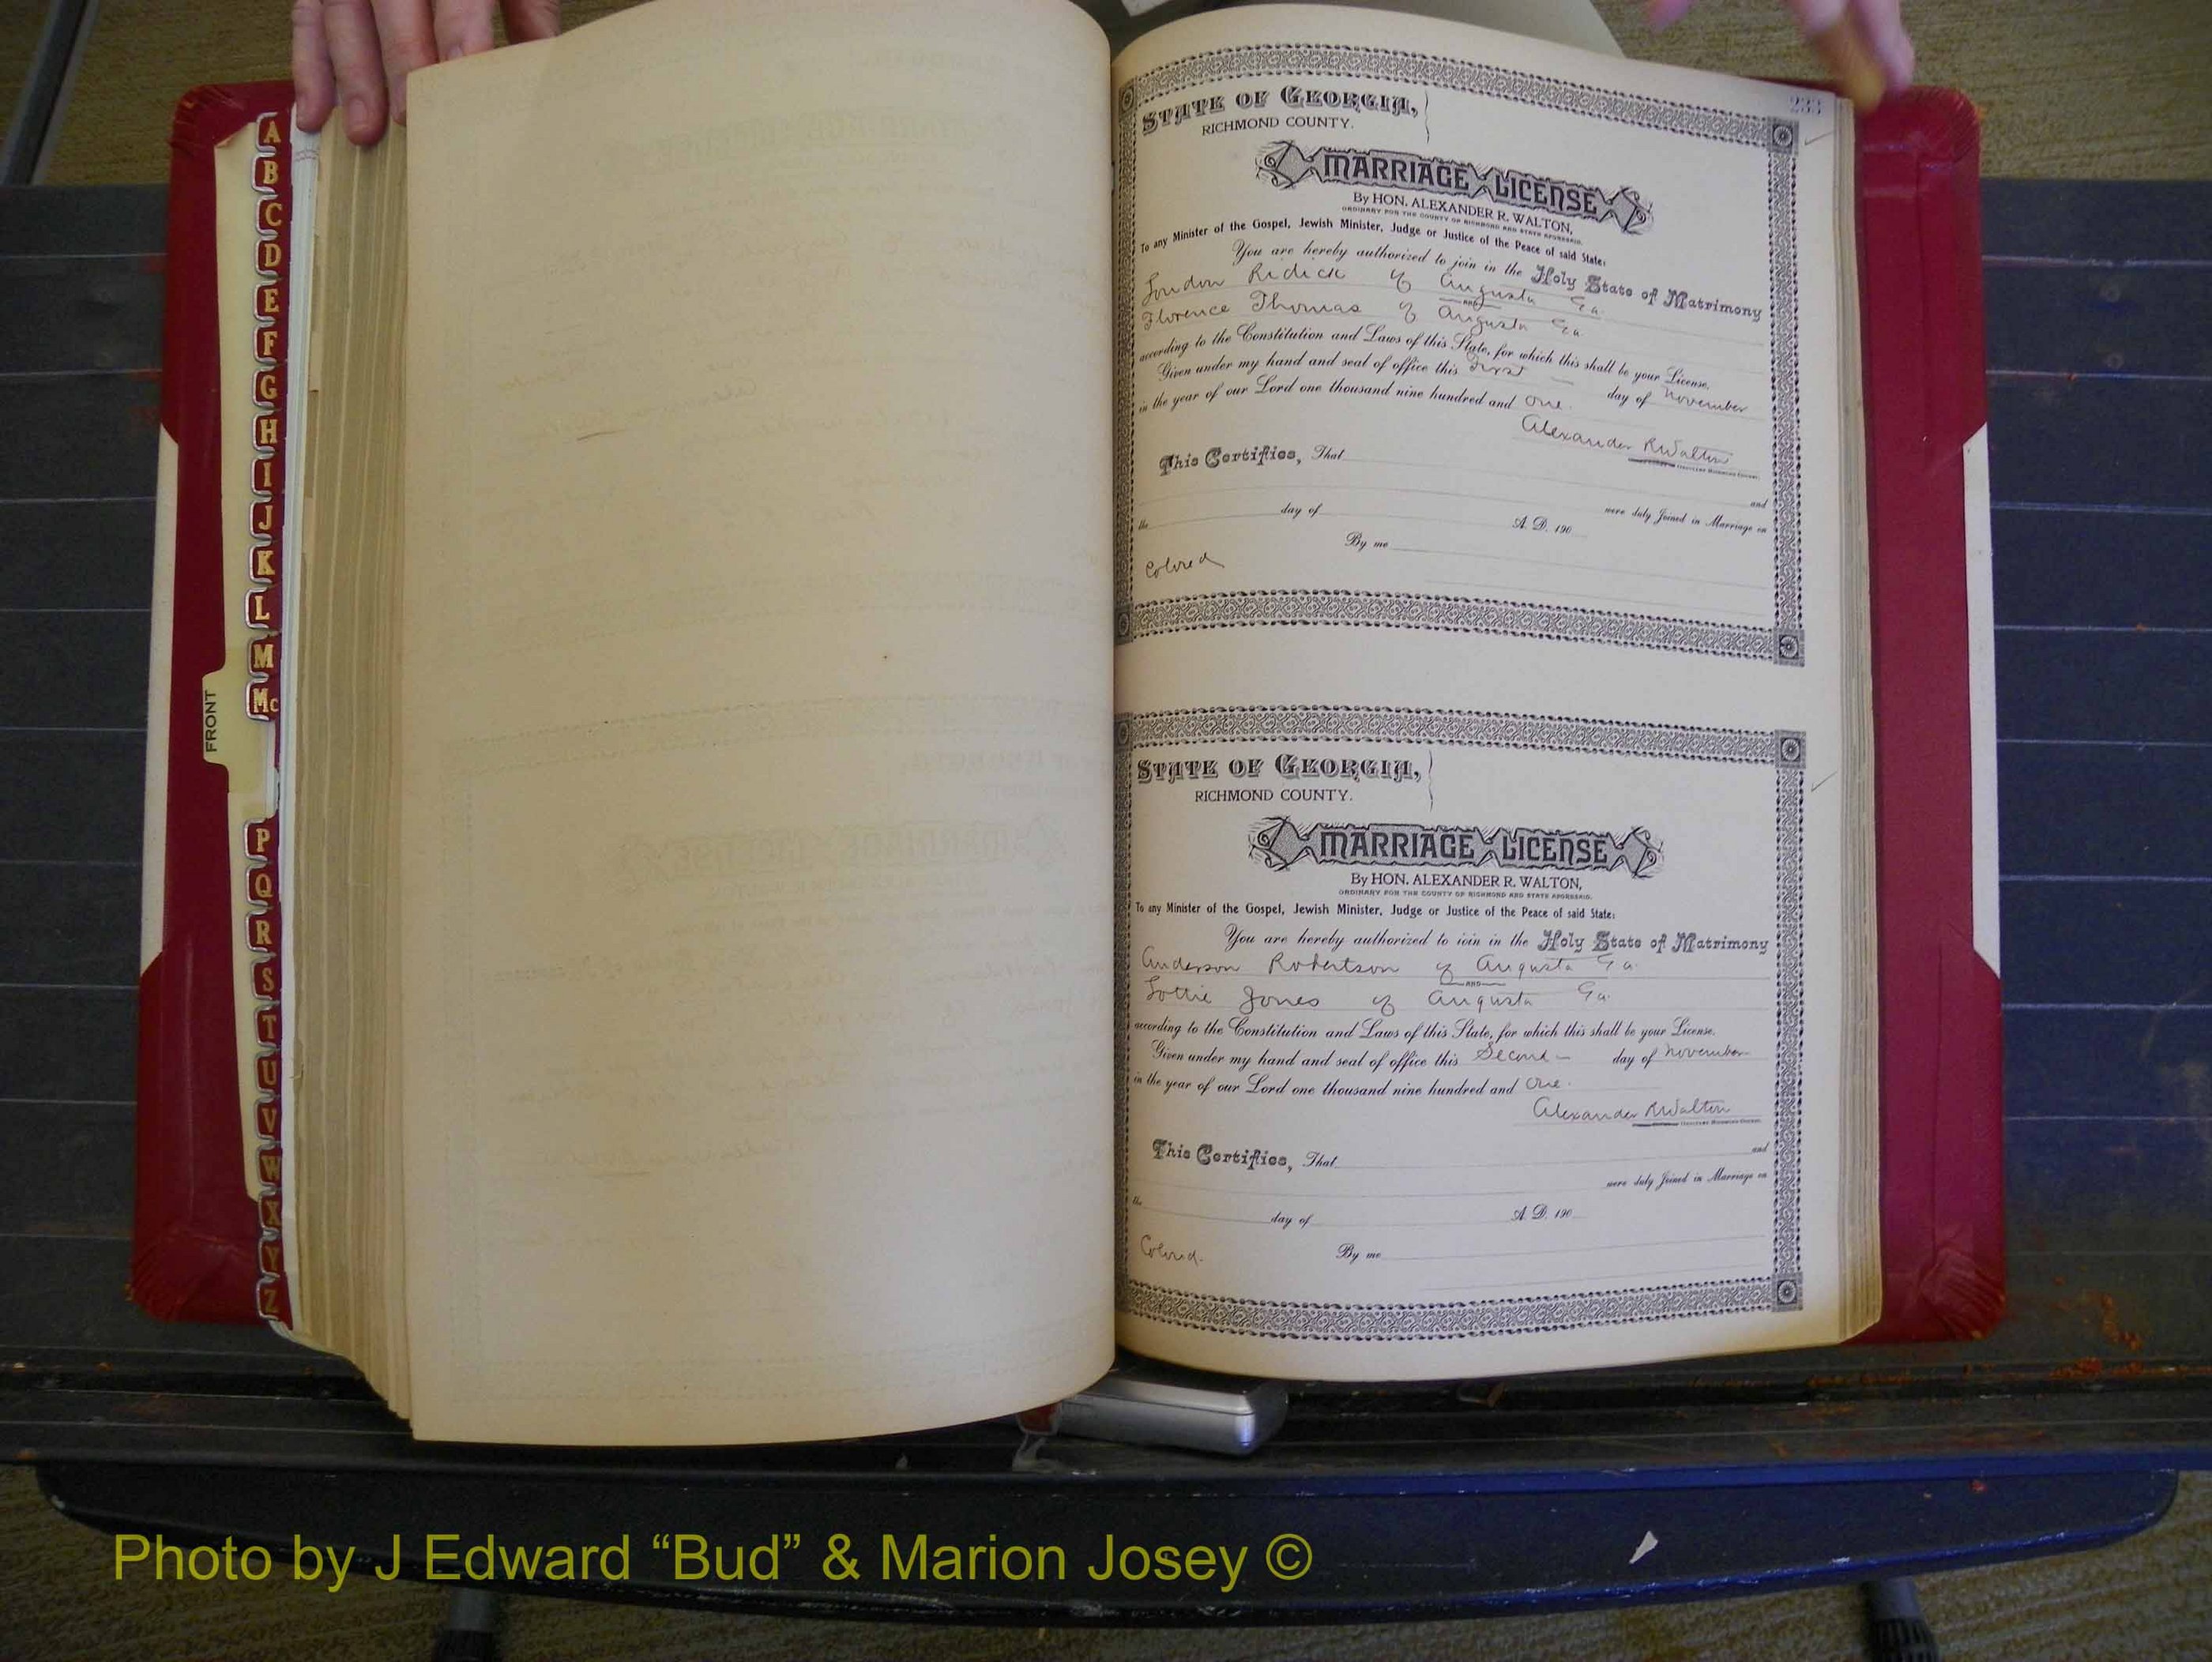 A
B
C
D
E
F
G
H
I
J
K
L
M
Mc
FRONT
P
Q
R
S
T
U
V
W
X
Y
Z
233
STATE OF GEORGIA,
RICHMOND COUNTY.
MARRIAGE LICENSE
By HON. ALEXANDER R. WALTON,
ORDINARY FOR THE COUNTY OF RICHMOND AND STATE AFORESAID.
To any Minister of the Gospel, Jewish Minister, Judge or Justice of the Peace of said State:
You are hereby authorized to join in the Holy State of Matrimony
London Ridick of Augusta Ga.
AND
Florence Thomas of Augusta Ga
according to the Constitution and Laws of this State, for which this shall be your License.
Given under my hand and seal of office this First day of November
in the year of our Lord one thousand nine hundred and One.
Alexander R Walton
This Certifies, That
and
were duly Joined in Marriage on
the day of A. D. 190
By me
Colored
STATE OF GEORGIA,
RICHMOND COUNTY.
MARRIAGE LICENSE
By HON. ALEXANDER R. WALTON,
ORDINARY FOR THE COUNTY OF RICHMOND AND STATE AFORESAID.
To any Minister of the Gospel, Jewish Minister, Judge or Justice of the Peace of said State:
You are hereby authorized to join in the Holy State of Matrimony
Anderson Robertson of Augusta Ga.
AND
Lottie Jones of Augusta Ga.
according to the Constitution and Laws of this State, for which this shall be your License.
Given under my hand and seal of office this Second day of November
in the year of our Lord one thousand nine hundred and One.
Alexander R Walton
This Certifies, That
and
were duly Joined in Marriage on
the day of A. D. 190
Colored.
By me
Photo by J Edward “Bud” & Marion Josey ©